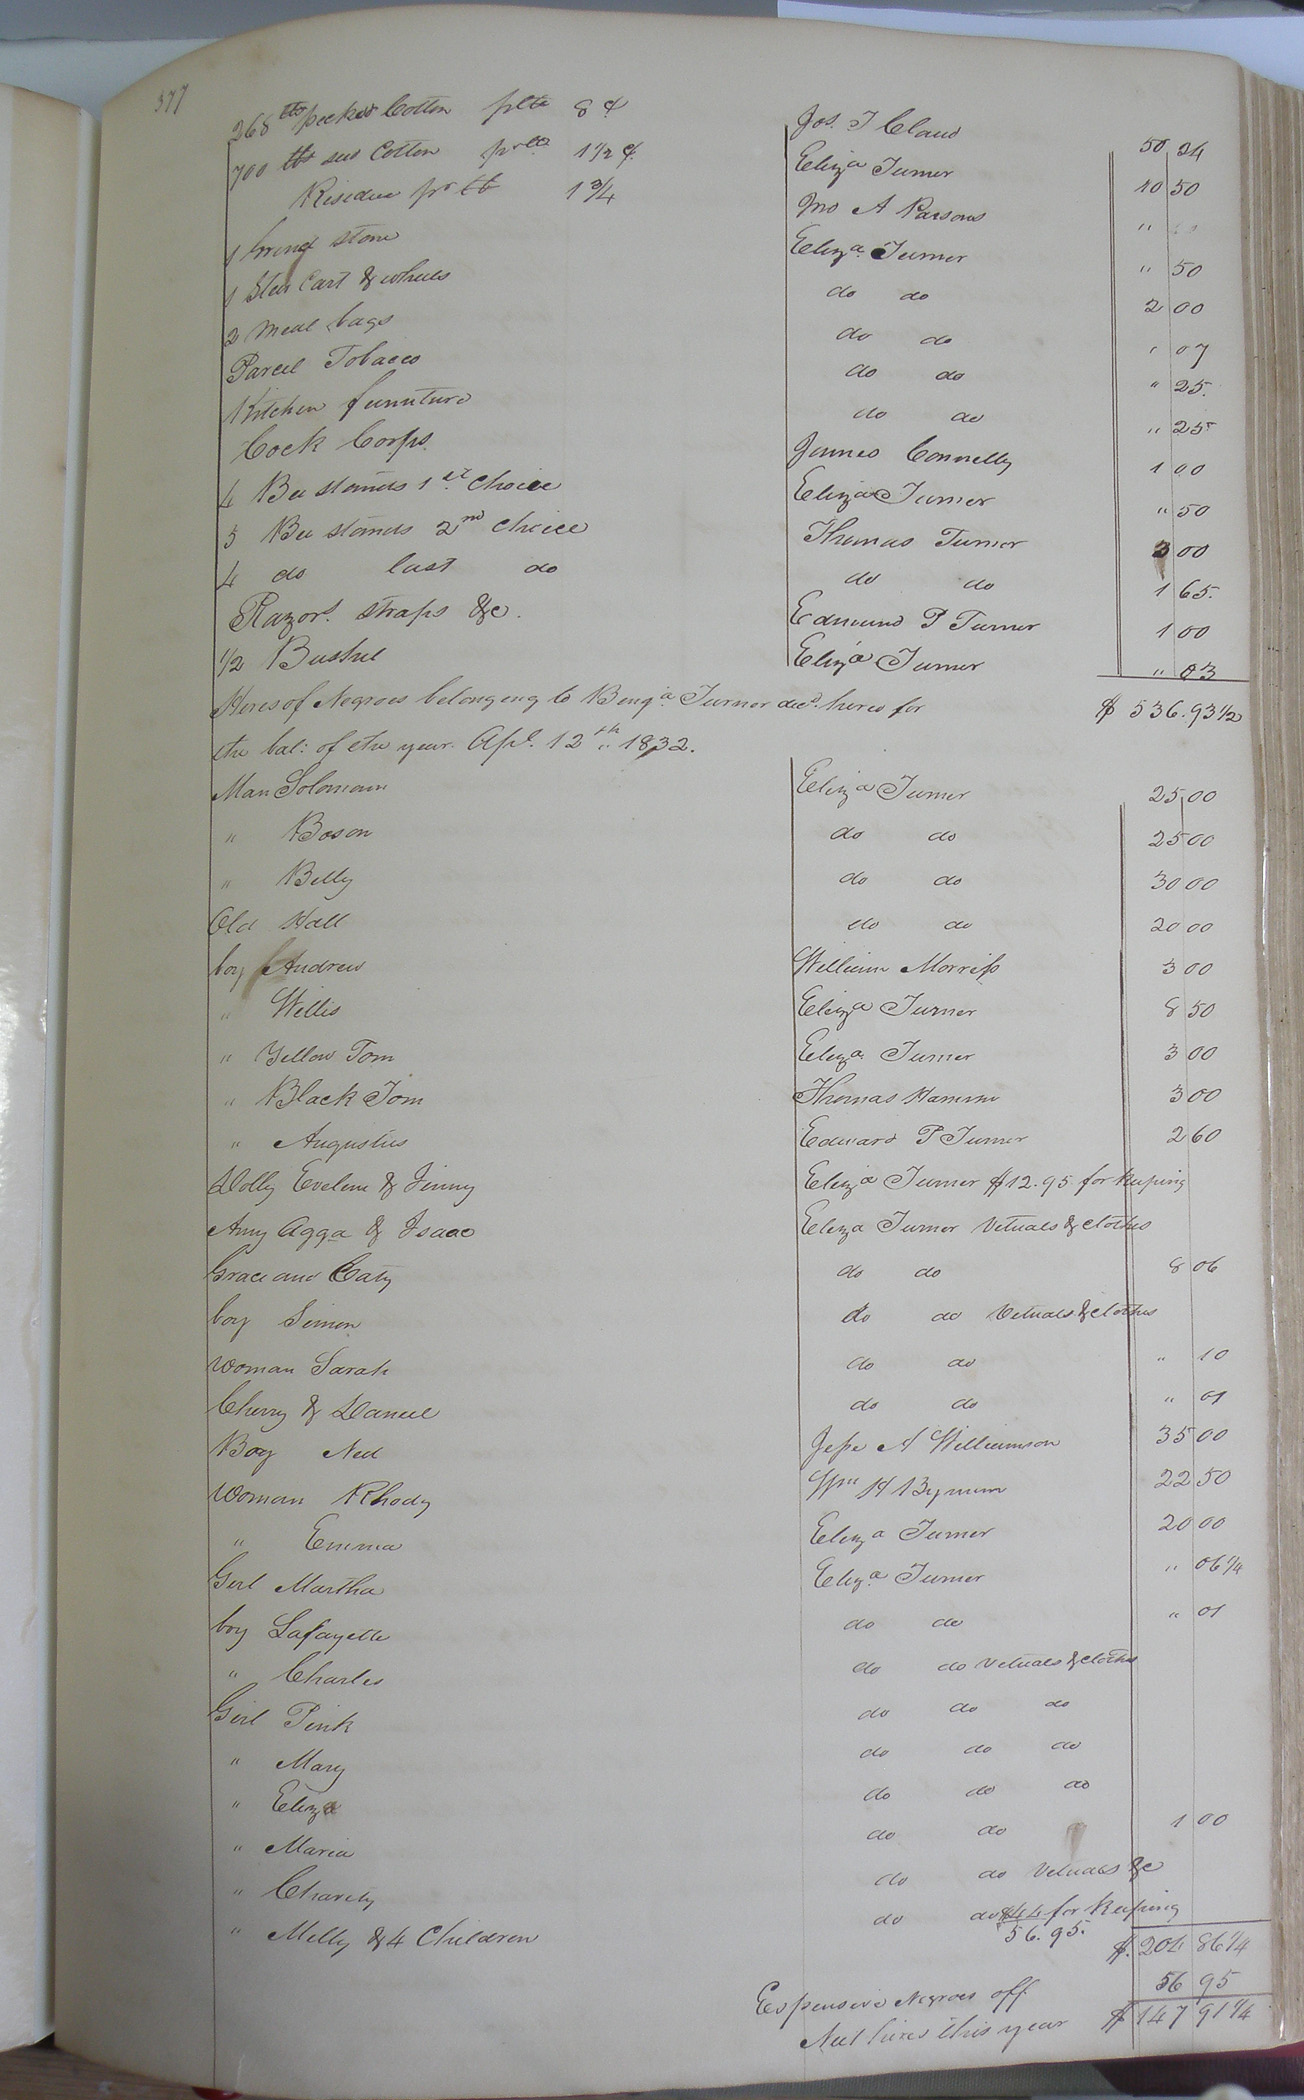 377
268 lbs picked Cotton pr lb 8 ¢ Jos. T Claud 50 24
700 lbs seed Cotton pr lb 1 1/2 ¢ Eliza Turner 10 50
Residue pr lb 1 3/4 Jno A Parsons "
1 Grind stone Eliza Turner " 50
1 Steer Cart & wheels do do 2 00
2 Meal bags do do " 07
Parcel Tobacco do do " 25
Kitchen furniture do do " 25
Cock Corps. James Connelly 1 00
4 Bee stands 1st Choice Eliza Turner " 50
5 Bee stands 2nd Choice Thomas Turner 3 00
4 do last do do do 1 65.
Razors. straps &c. Edmund P Turner 1 00
1/2 Bushel Eliza Turner " 03
Hires of Negroes belonging to Benja. Turner decd. hired for $ 536.93 1/2
the bal: of the year. Apl. 12th 1832.
Man Solomon Eliza Turner 25 00
" Boson do do 25 00
" Billy do do 30 00
Old Hall do do 20 00
boy Andrew William Morriss 3 00
" Willis Eliza Turner 8 50
" Yellow Tom Eliza Turner 3 00
" Black Tom Thomas Hamm 3 00
" Augustus Edward P Turner 2 60
Dolly Eveline & Jinny Eliza Turner $12.95 for keeping
Amy Agga & Isaac Eliza Turner Vetuals & clothes
Grace and Caty do do 8 06
boy Simon do do Vetuals & clothes
woman Sarah do do " 10
Cherry & Daniel do do " 01
Boy Ned Jesse A Williamson 35 00
woman Rhody Wm H Bynum 22 50
" Emma Eliza Turner 20 00
Girl Martha Eliza Turner " 06 1/4
boy Lafayette do do " 01
" Charles do do Vetuals & clothes
Girl Pink do do do
" Mary do do do
" Eliza do do do
" Maria do do 1 00
" Charity do do Vetuals &c
" Milly & 4 Children do do $44 for keeping
56.95. $. 204 86 1/4
Expensive Negroes off 56 95
Nett hires this year $ 147 91 1/4